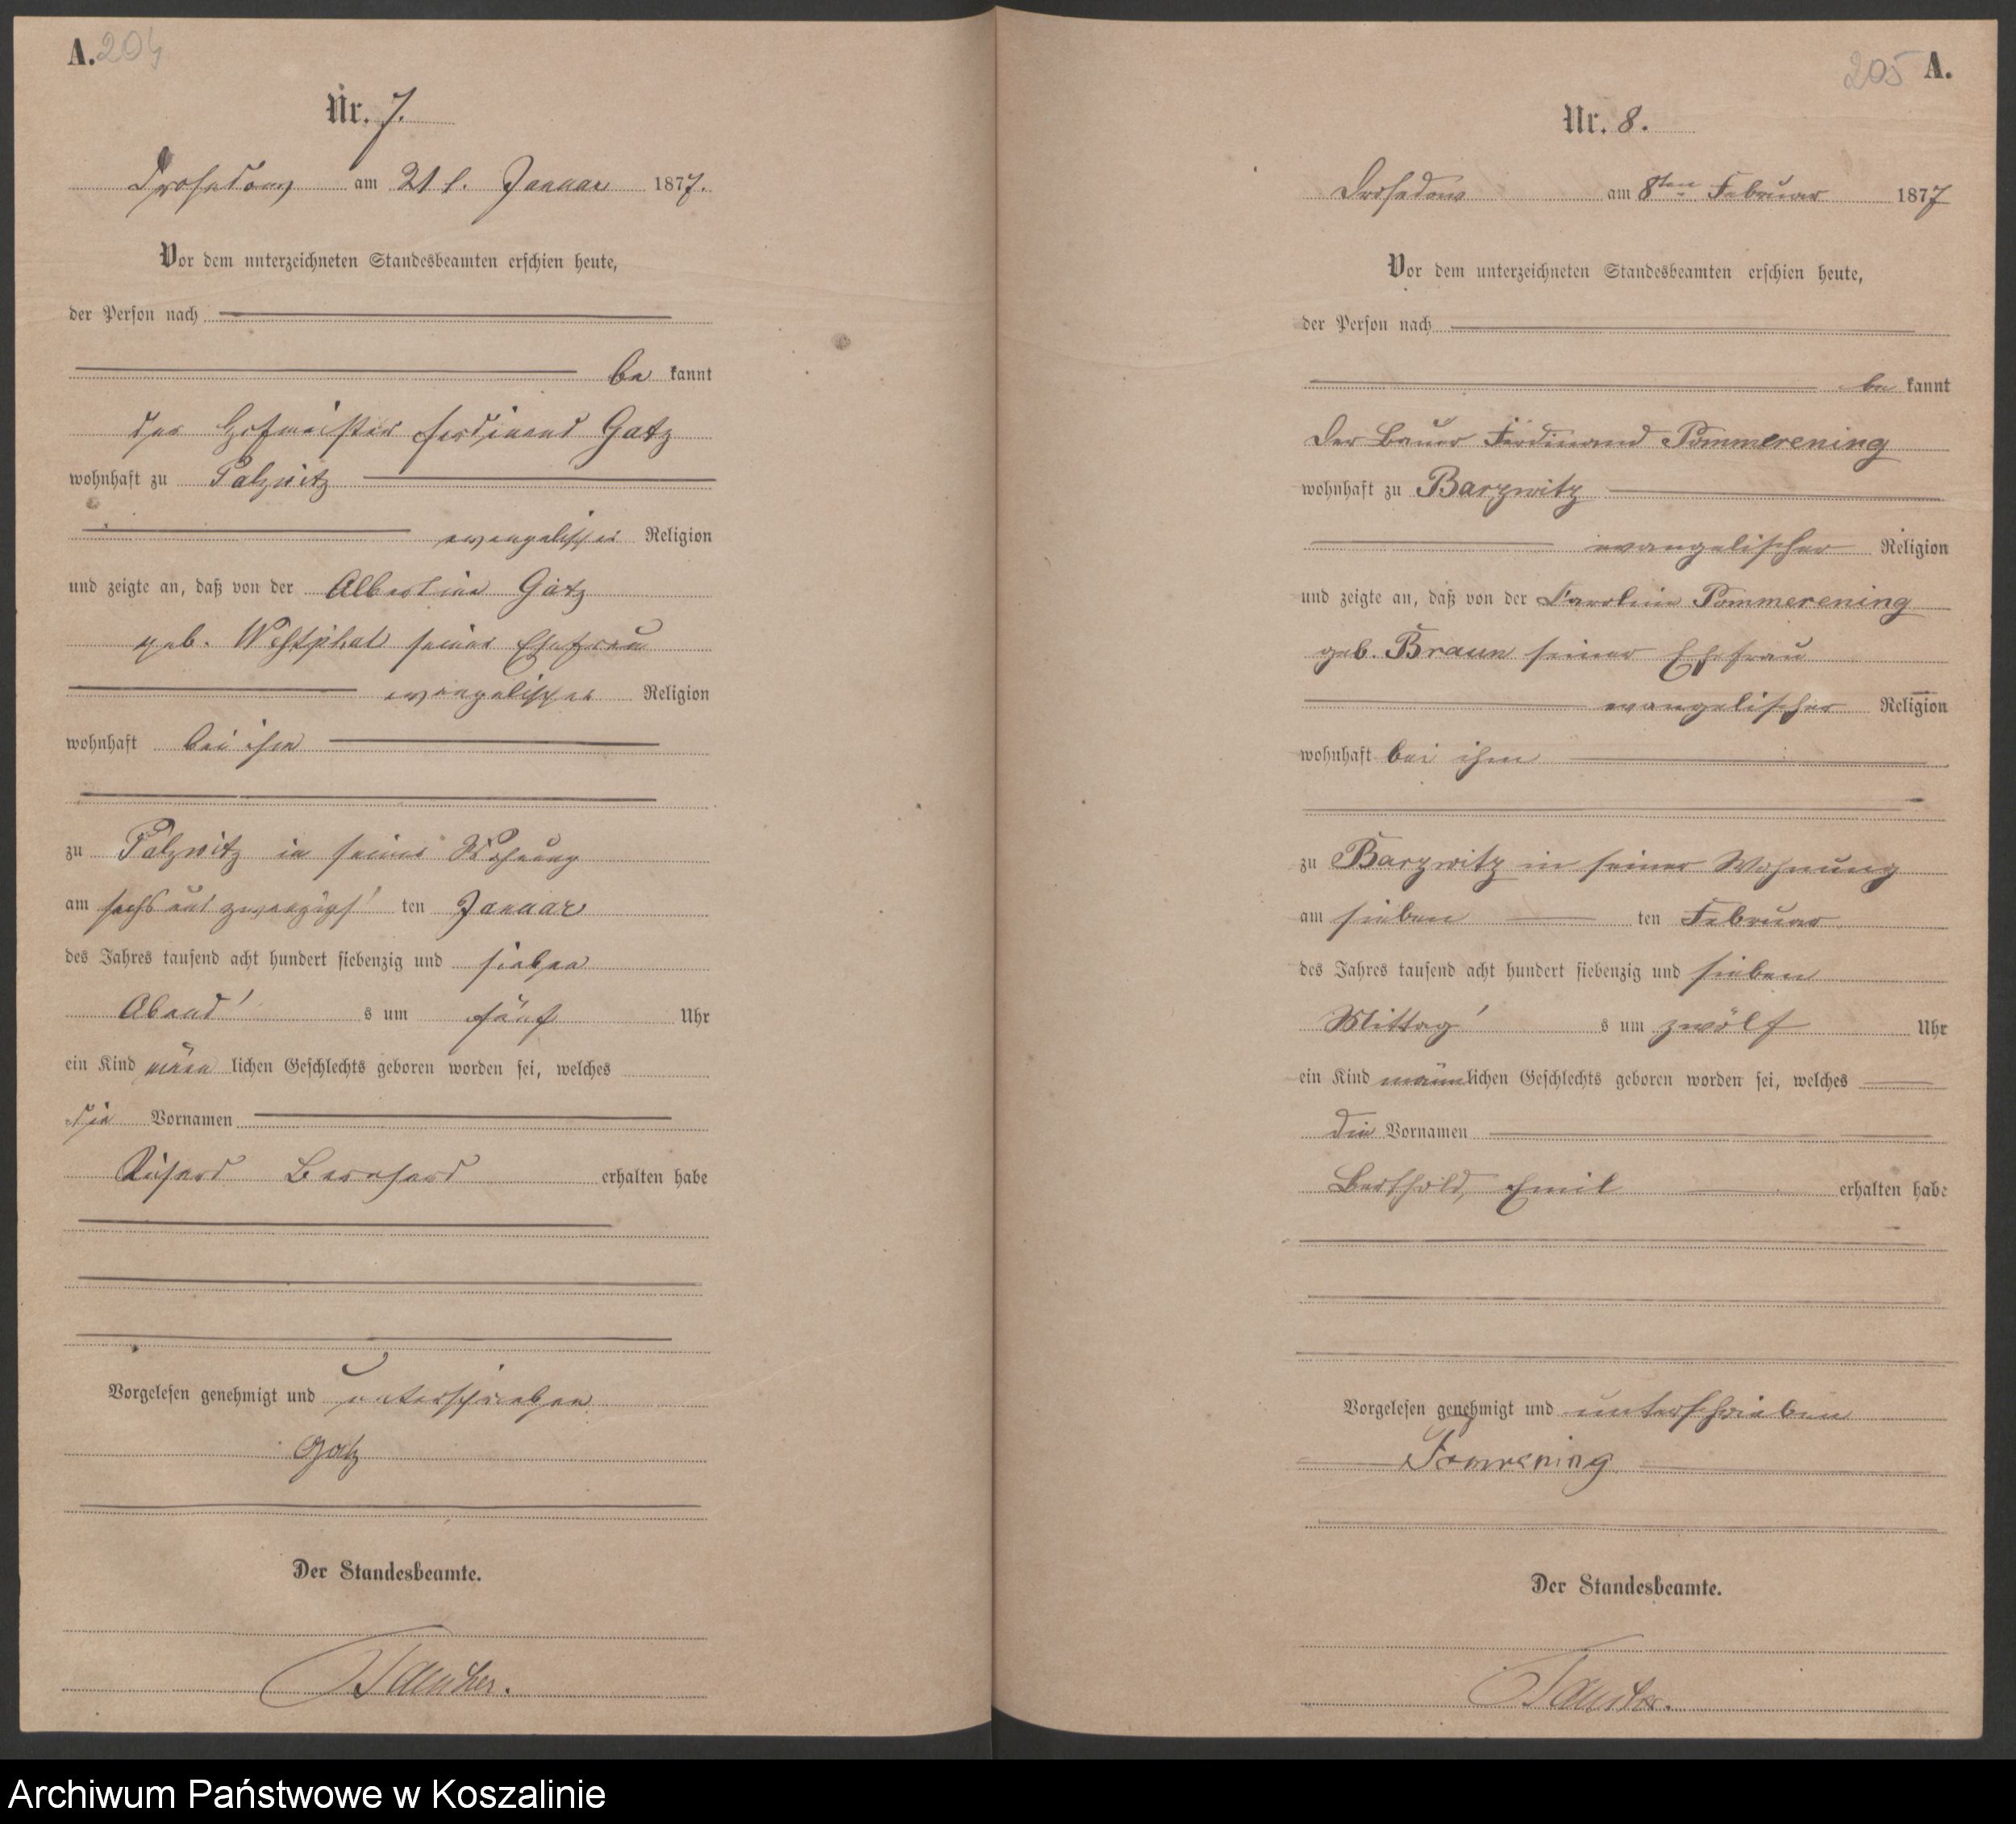 A. 204
Nr. 7.
Drosedow am 31 t. Januar 1877.
Vor dem unterzeichneten Standesbeamten erschien heute,
der Person nach
be kannt
der Hofmeister Ferdinand Gatz
wohnhaft zu Palzwitz
evangelischer Religion
und zeigte an, daß von der Albertine Gatz
geb. Westphal seiner Ehefrau
evangelischer Religion
wohnhaft bei ihm
zu Palzwitz in seiner Wohnung
am sechs und zwanzigs' ten Januar
des Jahres tausend acht hundert siebenzig und sieben
Abend' s um fünf Uhr
ein Kind männ lichen Geschlechts geboren worden sei, welches
die Vornamen
Richard Bernhard erhalten habe
Vorgelesen genehmigt und unterschrieben
Gatz
Der Standesbeamte.
205 A.
Nr. 8.
Drosedow am 8ten Februar 1877
Vor dem unterzeichneten Standesbeamten erschien heute,
der Person nach
be kannt
Der Bauer Ferdinand Pommerening
wohnhaft zu Barzwitz
evangelischer Religion
und zeigte an, daß von der Caroline Pommerening
geb. Braun seiner Ehefrau
evangelischer Religion
wohnhaft bei ihm
zu Barzwitz in seiner Wohnung
am sieben ten Februar
des Jahres tausend acht hundert siebenzig und sieben
Mittag' s um zwölf Uhr
ein Kind männlichen Geschlechts geboren worden sei, welches
die Vornamen
Berthold, Emil erhalten habe
Vorgelesen genehmigt und unterschrieben
Der Standesbeamte.
Archiwum Państwowe w Koszalinie